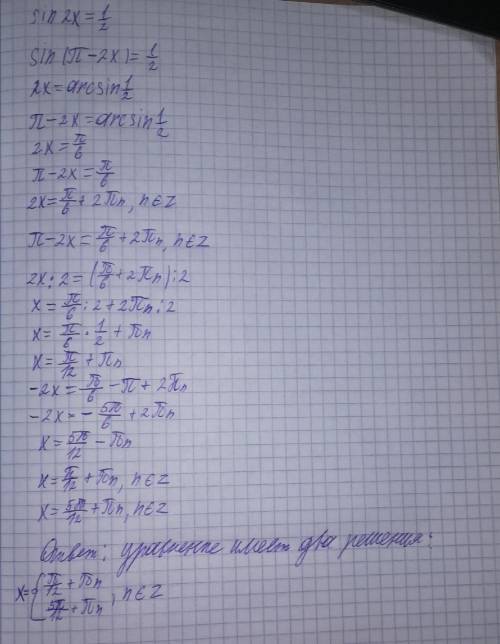 sin 2x = 1/2
sin(π-2x) = 1/2
2x = arcsin 1/2
π-2x = arcsin 1/2
2x = π/6
π-2x = π/6
2x = π/6 + 2πn, n∈Z
π-2x = π/6 + 2πn, n∈Z
2x : 2 = (π/6 + 2πn) : 2
x = π/6 : 2 + 2πn : 2
x = π/6 · 1/2 + πn
x = π/12 + πn
-2x = π/6 - π + 2πn
-2x = - 5π/6 + 2πn
x = 5π/12 - πn
x = π/12 + πn, n∈Z
x = 5π/12 + πn, n∈Z
Ответ: уравнение имеет два решения:
x = { π/12 + πn
5π/12 + πn , n∈Z